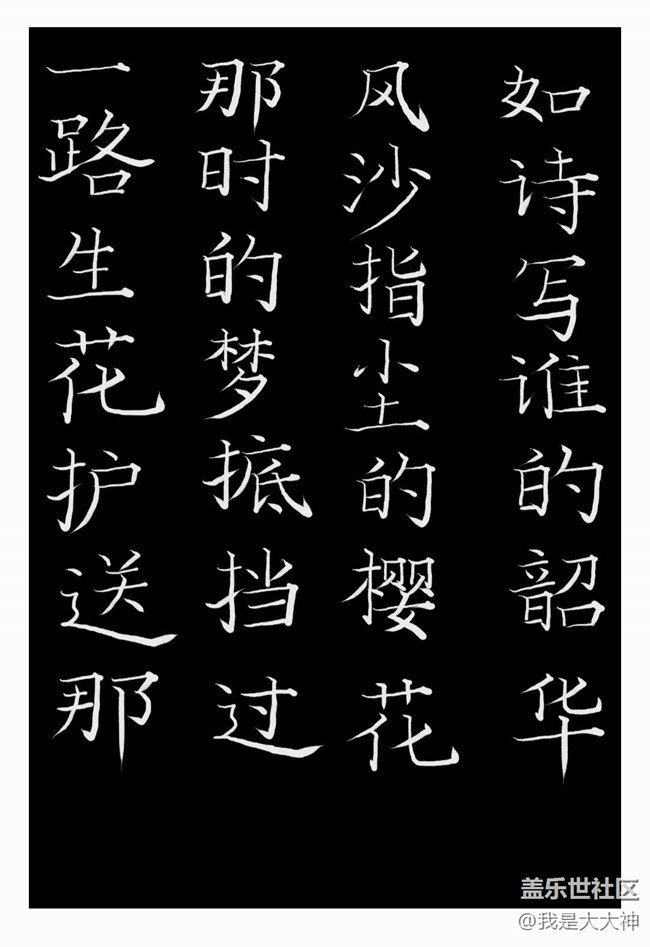 如诗写谁的韶华
风沙指尘的樱花
那时的梦抵挡过
一路生花护送那
盖乐世社区
@我是大大神